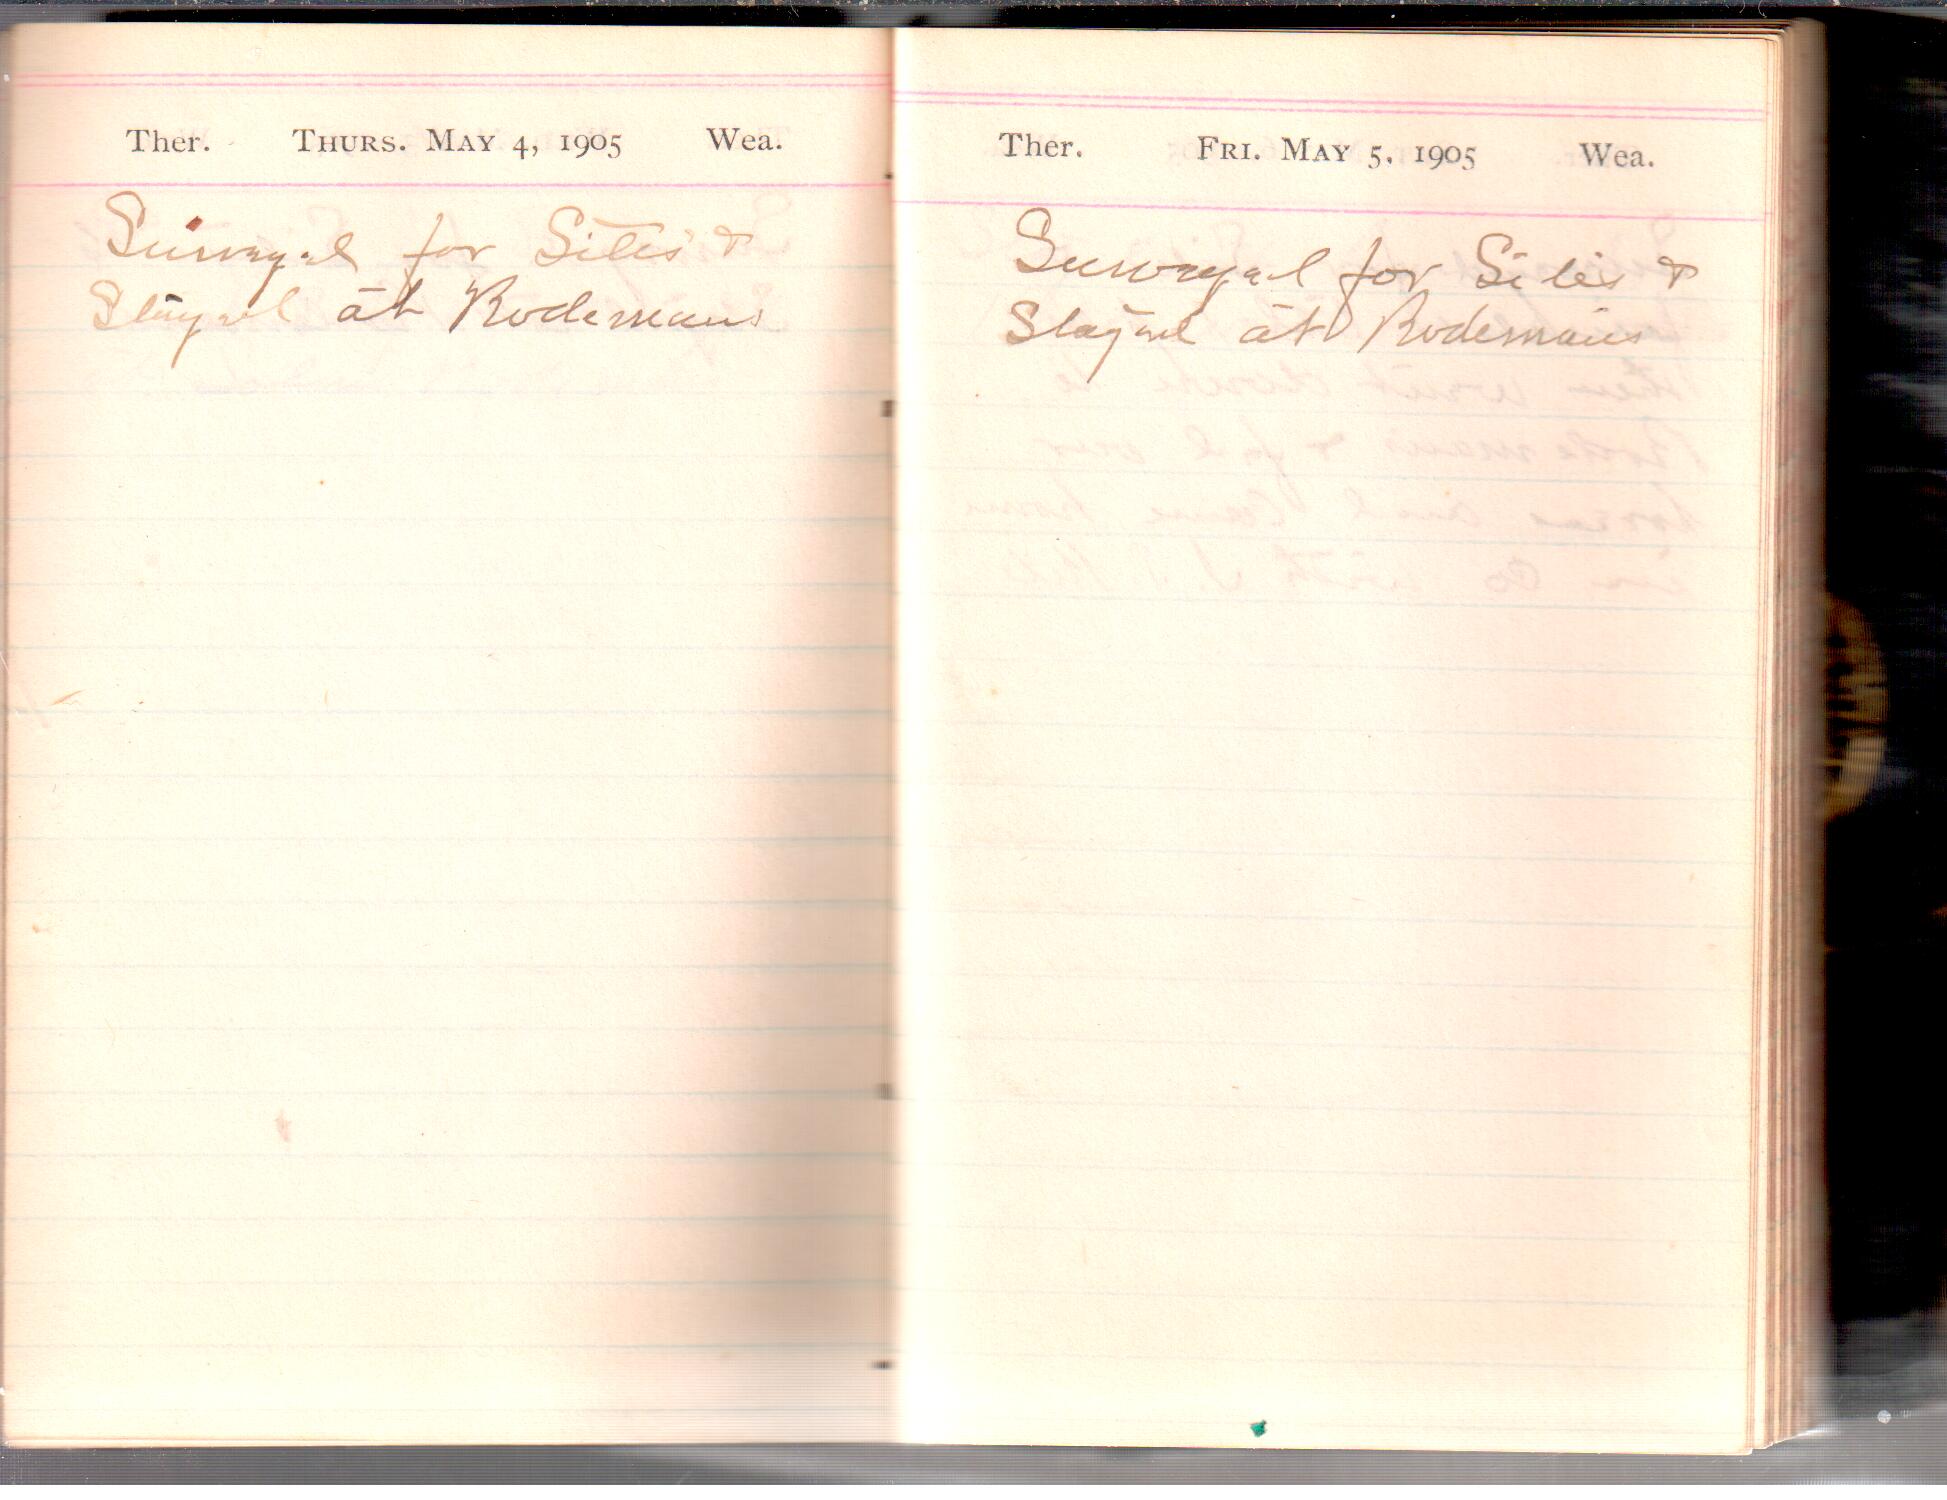 Ther. THURS. MAY 4, 1905 Wea.
Surveyed for Sites &
Stayed at Rodemans
Ther. FRI. MAY 5, 1905 Wea.
Surveyed for Sites &
Stayed at Rodemans